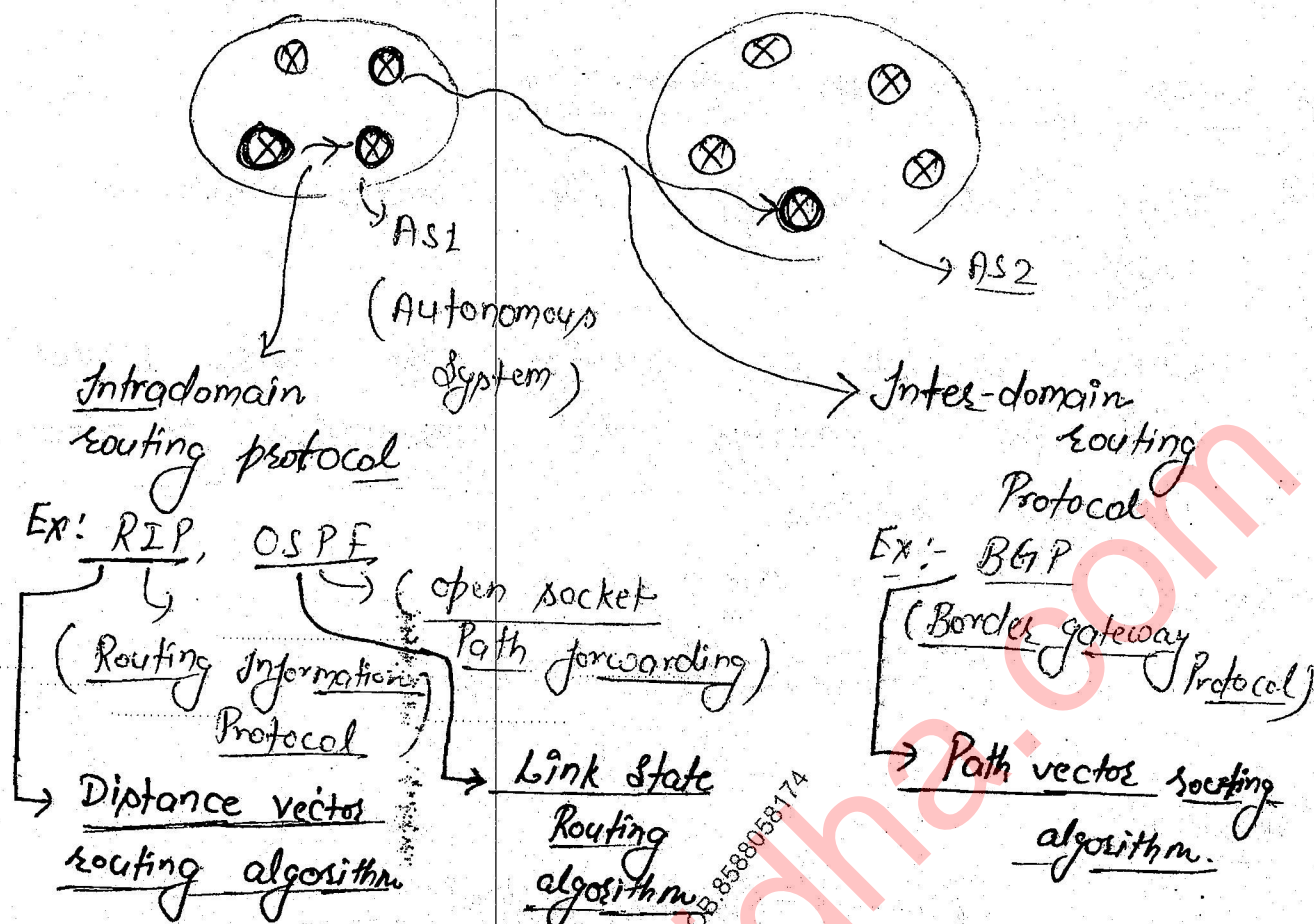 AS1
(Autonomous
System)
AS2
Intradomain
routing protocol
Ex: RIP, OSPF
(Routing Information
Protocol)
(open socket
Path forwarding)
Distance vector
routing algorithm
Link State
Routing
algorithm
Inter-domain
routing
Protocol
Ex:- BGP
(Border gateway
Protocol)
Path vector routing
algorithm.
8588058174
dha.com